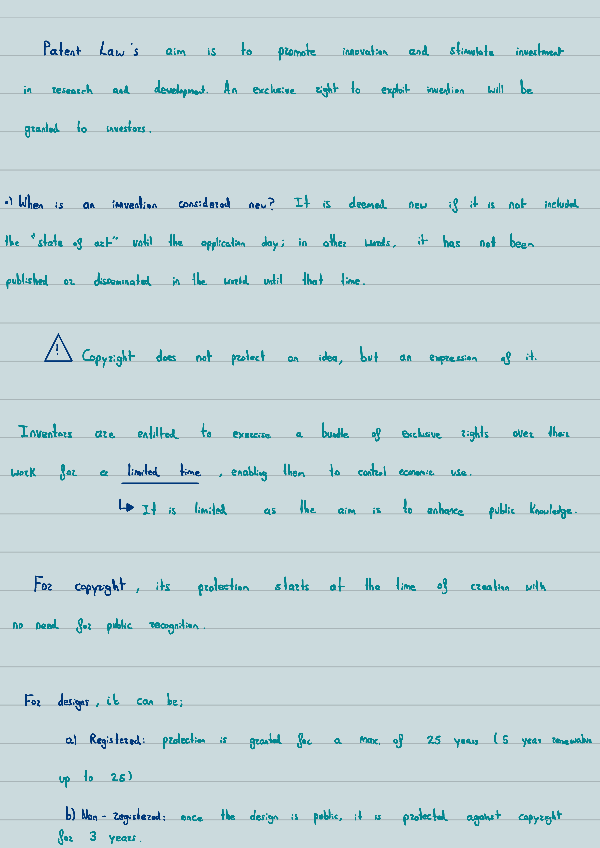 Patent Law's aim is to promote innovation and stimulate investment
in research and development. An exclusive right to exploit invention will be
granted to investors.
•) When is an invention considered new? It is deemed new if it is not included
the "state of art" until the application day; in other words, it has not been
published or disseminated in the world until that time.
! Copyright does not protect an idea, but an expression of it.
Inventors are entitled to exercise a bundle of exclusive rights over their
work for a limited time, enabling them to control economic use.
↳ It is limited as the aim is to enhance public knowledge.
For copyright, its protection starts at the time of creation with
no need for public recognition.
For designs, it can be;
a) Registered: protection is granted for a max. of 25 years (5 year renewable
up to 25)
b) Non-registered: once the design is public, it is protected against copyright
for 3 years.